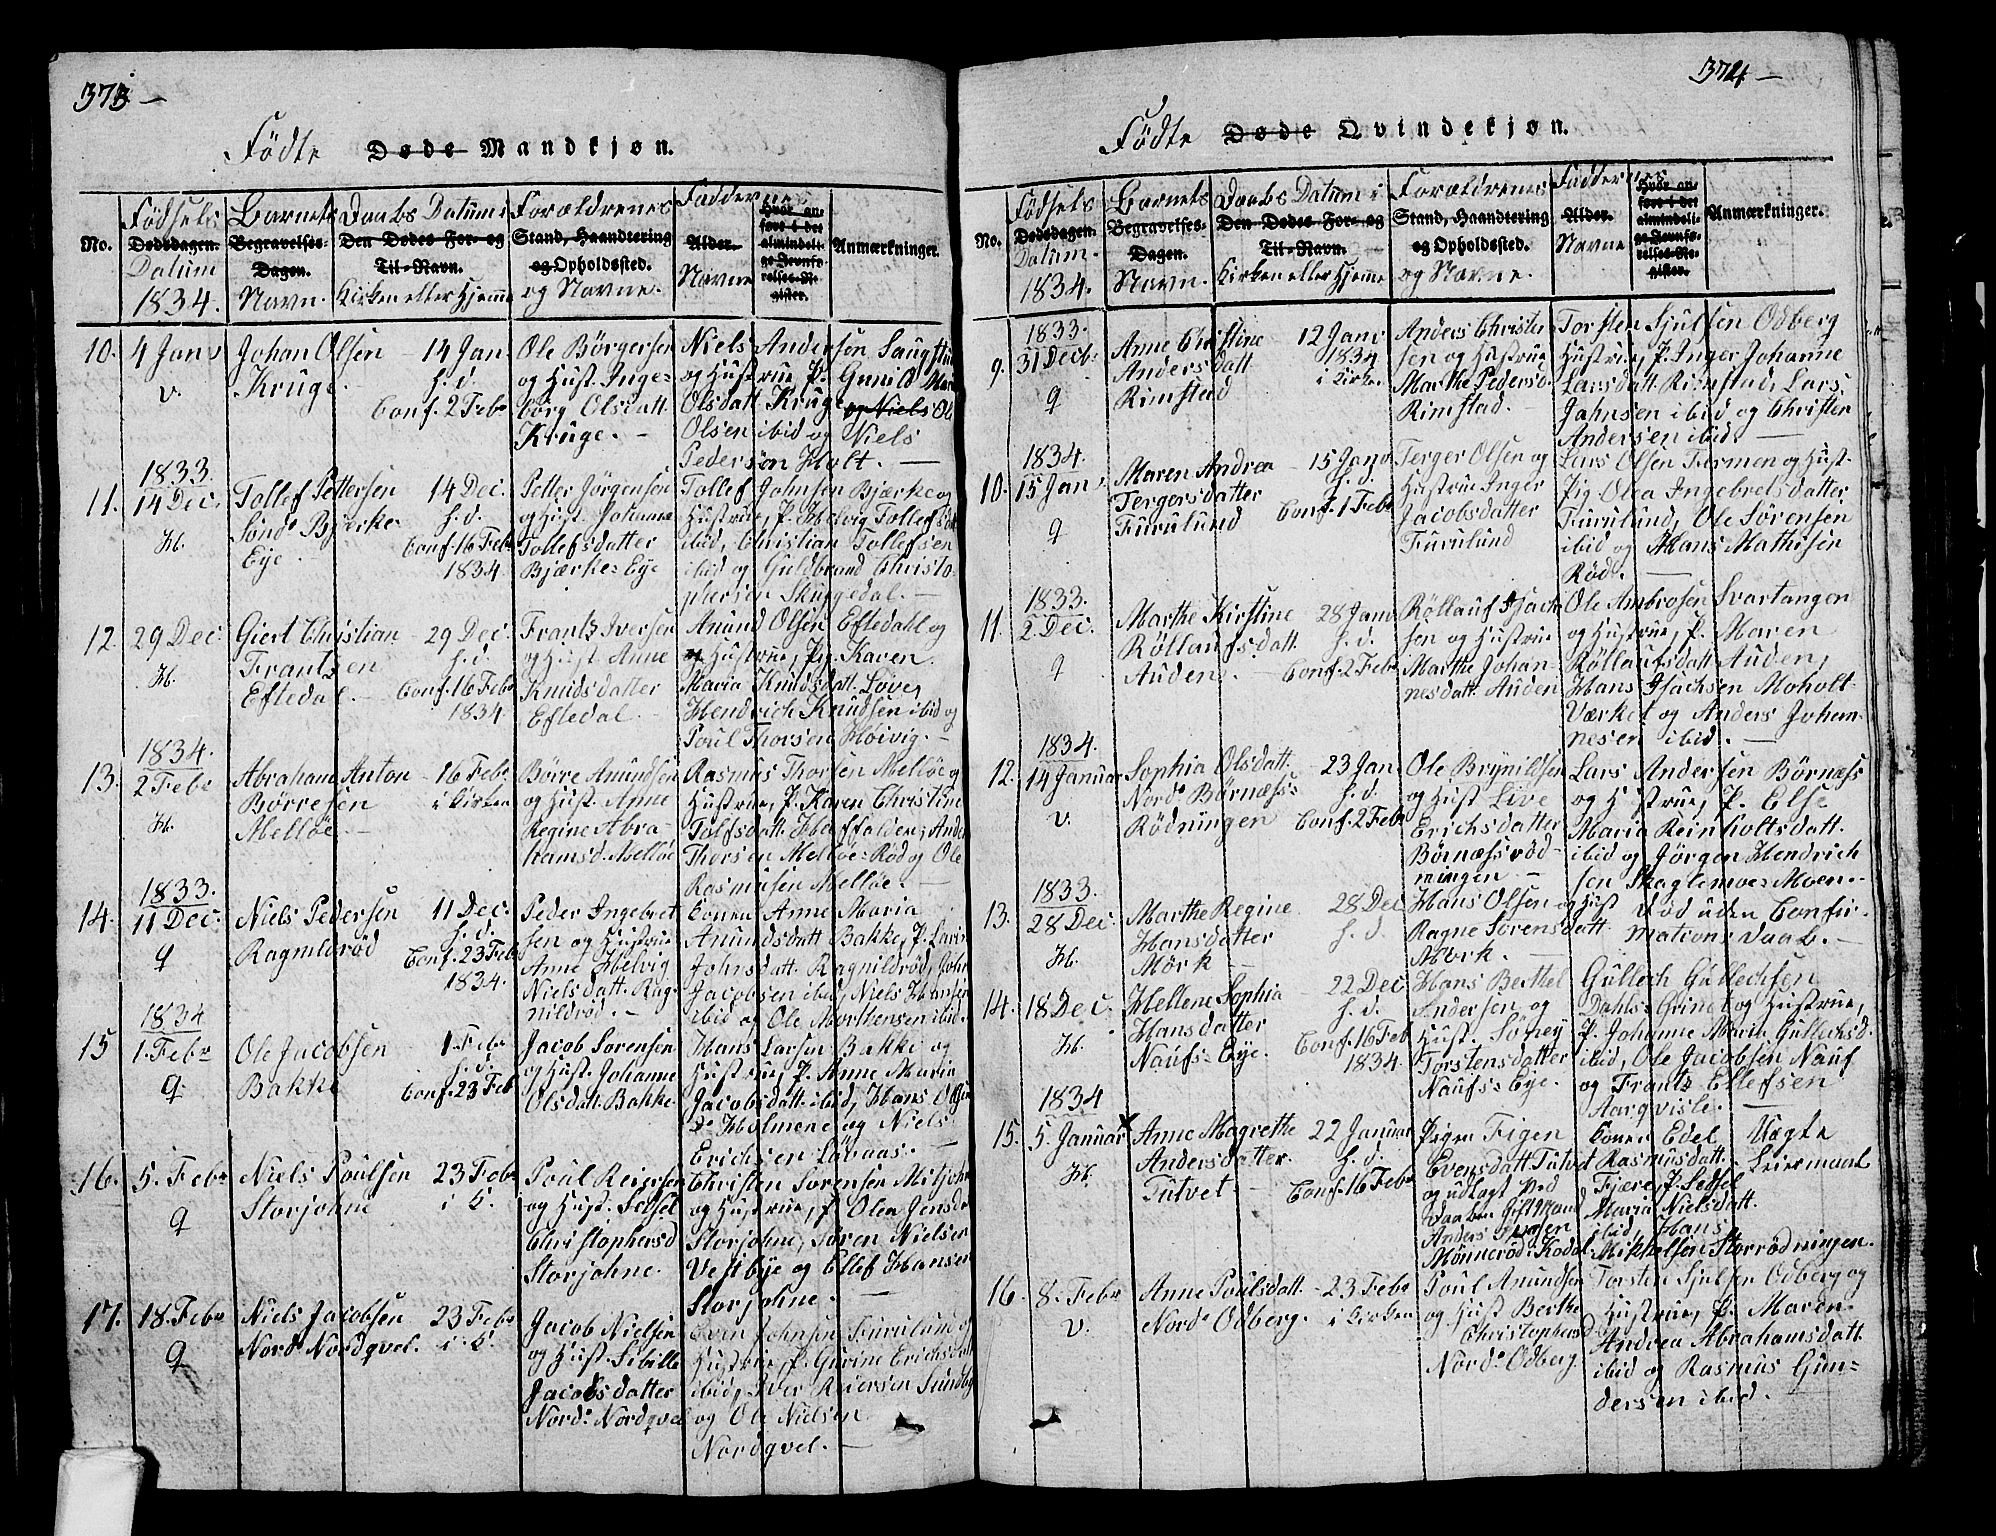 373 —
Födte Døde Mandkjøn.
No.
Födsels
Dødsdagen.
Datum
1834.
Barnets
Begravelses-
Dagen.
Navn.
Daabs Datum i
Den Dødes For- og
Til-Navn.
Kirken eller Hjemme
Forældrenes
Stand, Haandtering
og Opholdssted.
og Navne.
Faddernes
Alder.
Navne
Hvor an-
føre i det
almindeli-
ge Jevnfø-
relses-Re-
gister.
Anmærkninger.
10.
4 Janv
v.
Johan Olsen
Kruge.
14 Jan.
h. d.
Conf. 2 Febr
Ole Börgersen
og Hust. Inge-
borg Olsdatt.
Kruge. —
Niels Andersen
og Hustrue, P. Gunild
Olsdatt Kruge og Niels Ole
Olsen ibid og Niels
Pedersen Holt. —
11.
1833.
14 Dec.
H.
Tollef Pettersen
Sönd. Bjerke
Eye
14 Dec.
h. d.
Conf. 16 Febr
1834.
Petter Jörgensen
og Hust. Johanne
Tollefsdatter
Bjærke-Eye
Tollef Johnsen Bjærke og
Hustrue, P. Helvig Tollefsdatt
ibid, Christian Tollefsen
ibid og Guldbrand Christo-
phersen Skuggedal. —
12.
29 Dec.
H.
Giert Christian
Frantzen
Eftedal. —
29 Dec.
h. d.
Conf. 16 Febr
1834.
Frantz Iversen
og Hust. Anne
Knudsdatter
Eftedal —
Anund Olsen Eftedall og
Hustrue, Pig. Karen
Maria Knudsdatt. Löve,
Hendrich Knudsen ibid og
Poul Thorsen Höivig. —
13.
1834.
2 Febr
H.
Abraham Anton
Börresen
Mellöe. —
16 Febr
i Kirken
Börre Amundsen
og Hust. Anne
Regine Abra-
hamsd. Mellöe
Rasmus Thorsen Mellöe og
Hustrue, P. Karen Christine
Tolfsdatt. Haffalden, Anders
Thorsen Mellöe-Röd og Ole
Rasmusen Mellöe. —
14.
1833.
11 Dec.
q
Niels Pedersen
Ragnildröd
11 Dec.
h. d.
Conf. 23 Febr
1834.
Peder Ingebret
sen og Hustrue
Anne Helvig
Nielsdatt. Rag-
nildröd. —
Conen Anne Maria
Anundsdatt Bakke, P. Laris
Johnsdatt. Ragnildröd, John
Jacobsen ibid, Niels Hansen
ibid og Ole Morthensen ibid.
15
1834
1. Febr
q.
Ole Jacobsen
Bakke
1. Febr
h. d.
Conf. 23 Feb
Jacob Sorensen
og Hust. Johanne
Olsdatt. Bakke.
Hans Larsen Bakke og
Hustrue, P. Anne Maria
Jacobsdatt. ibid, Hans Olsen
Holmene og Niels
Erichsen Låvaas. —
16.
5. Febr
q
Niels Poulsen
Storjohne
23 Febr
i K.
Poul Reiersen
og Hust. Sessel
Christophersd
Storjohne.
Christen Sorensen Mitjohne
og Hustrue, P. Olea Jensd
Storjohne, Sören Nielsen
Vestbye og Ellef Hansen
Storjohne. —
17.
18. Febr
q
Niels Jacobsen
Nord. Nordqvel.
23 Febr
i K.
Jacob Nielsen
og Hust. Sibille
Jacobsdatter
Nord. Nordqvel
Even Johnsen Furulund og
Hustrue, P. Gurine Erichsdatt
ibid, Iver Reiersen Sundby
og Ole Nielsen
Nordqvel. —
374 —
Födte Døde Qvindekjøn.
No.
Födsels
Dødsdagen.
Datum.
1834.
Barnets
Begravelses-
Dagen.
Navn.
Daabs Datum i
Den Dødes For- og
Til-Navn.
Kirken eller Hjemme
Forældrenes
Stand, Haandtering
og Opholdssted.
og Navne.
Faddernes
Alder.
Navne
Hvor an-
føre i det
almindeli-
ge Jevnfø-
relses-Re-
gister.
Anmærkninger.
9.
1833.
31 Decbr
q
Anne Christine
Andersdatt
Rimstad
12 Janv
1834
i Kirke.
Anders Christen
sen og Hustrue
Marthe Pedersd.
Rimstad. —
Torsten Sjulsen Odberg
Hustrue, P. Inger Johanne
Larsdatt. Rimstad, Lars
Jahnsen ibid og Christen
Andersen ibid. —
10.
1834.
15 Janv
q
Maren Andrea
Tergersdatter
Furulund
15 Janv
h. d.
Conf. 1 Febr
Terger Olsen og
Hustrue Inger
Jacobsdatter
Furulund
Lars Olsen Furmen og Hust.
Pig. Olea Ingebretsdatter
Furulund, Ole Sörensen
ibid og Hans Mathisen
Röd. —
11.
1833.
2 Dec.
q
Marthe Kirstine
Röllaufsdatt.
Auden. —
28 Janv
h. d.
Conf. 2 Febr
Röllauf Isach
sen og Hustrue
Marthe Johan-
nesdatt. Auden
Ole Ambrosen Svartangen
og Hustrue, P. Maren
Röllaufsdatt Auden,
Hans Isachsen Moholt-
Værket og Anders Johan-
nesen ibid. —
12.
1834.
14 Januar
v.
Sophia Olsdatt.
Nord. Börnæss
Rödningen
23 Jan.
h. d.
Conf. 2 Febr
Ole Brynildsen
og Hust Live
Erichsdatter
Börnæssröd-
ningen —
Lars Andersen Börnæss
og Hustrue, P. Else
Maria Reinholtsdatt.
ibid og Jörgen Hendrich
sen Skaglemoe-Moen. —
13.
1833.
28 Dec.
H.
Marthe Regine
Hansdatter
Mörk —
28 Dec.
h. d.
Hans Olsen og Hust
Ragne Sorensdatt.
Mork. —
Död uden Confir-
mations daab. —
14.
18 Dec.
H.
Hellene Sophia
Hansdatter
Naufs-Eye.
22 Dec
h. d.
Conf. 16 Feb
1834.
Hans Berthel
Andersen og
Hust. Söney
Torstensdatter
Naufs-Eye.
Gullech Gullechsen
Dahls-Grinet og Hustrue,
P. Johanne Maria Gullechsd.
ibid, Ole Jacobsen Nauf
og Frantz Ellefsen
Aarqvisle. —
15.
1834
5. Januar
H.
Anne Magrethe
Andersdatter.
Tutvet —
22 Januar
h. d.
Conf. 16 Febr
Pigen Figen
Evensdatt Tutvet
og udlagt ved
Daaben Gift Mand
Anders
Mönneröd i Kodal
Conen Edel
Rasmusdatt.
Fjære, P. Sessel
Maria Nielsdatt.
ibid, Hans
Mikkelsen Storrödningen.
Uægte
Leiermaal
16.
8. Febr
v.
Anne Poulsdatt.
Nord. Odberg.
23 Febr
i Kirken
Poul Anundsen
og Hust Berthe
Christophersd
Nord. Odberg
Torsten Sjulsen Odberg og
Hustrue, P. Maren
Andrea Abrahamsdatt
ibid og Rasmus Gun-
dersen ibid.